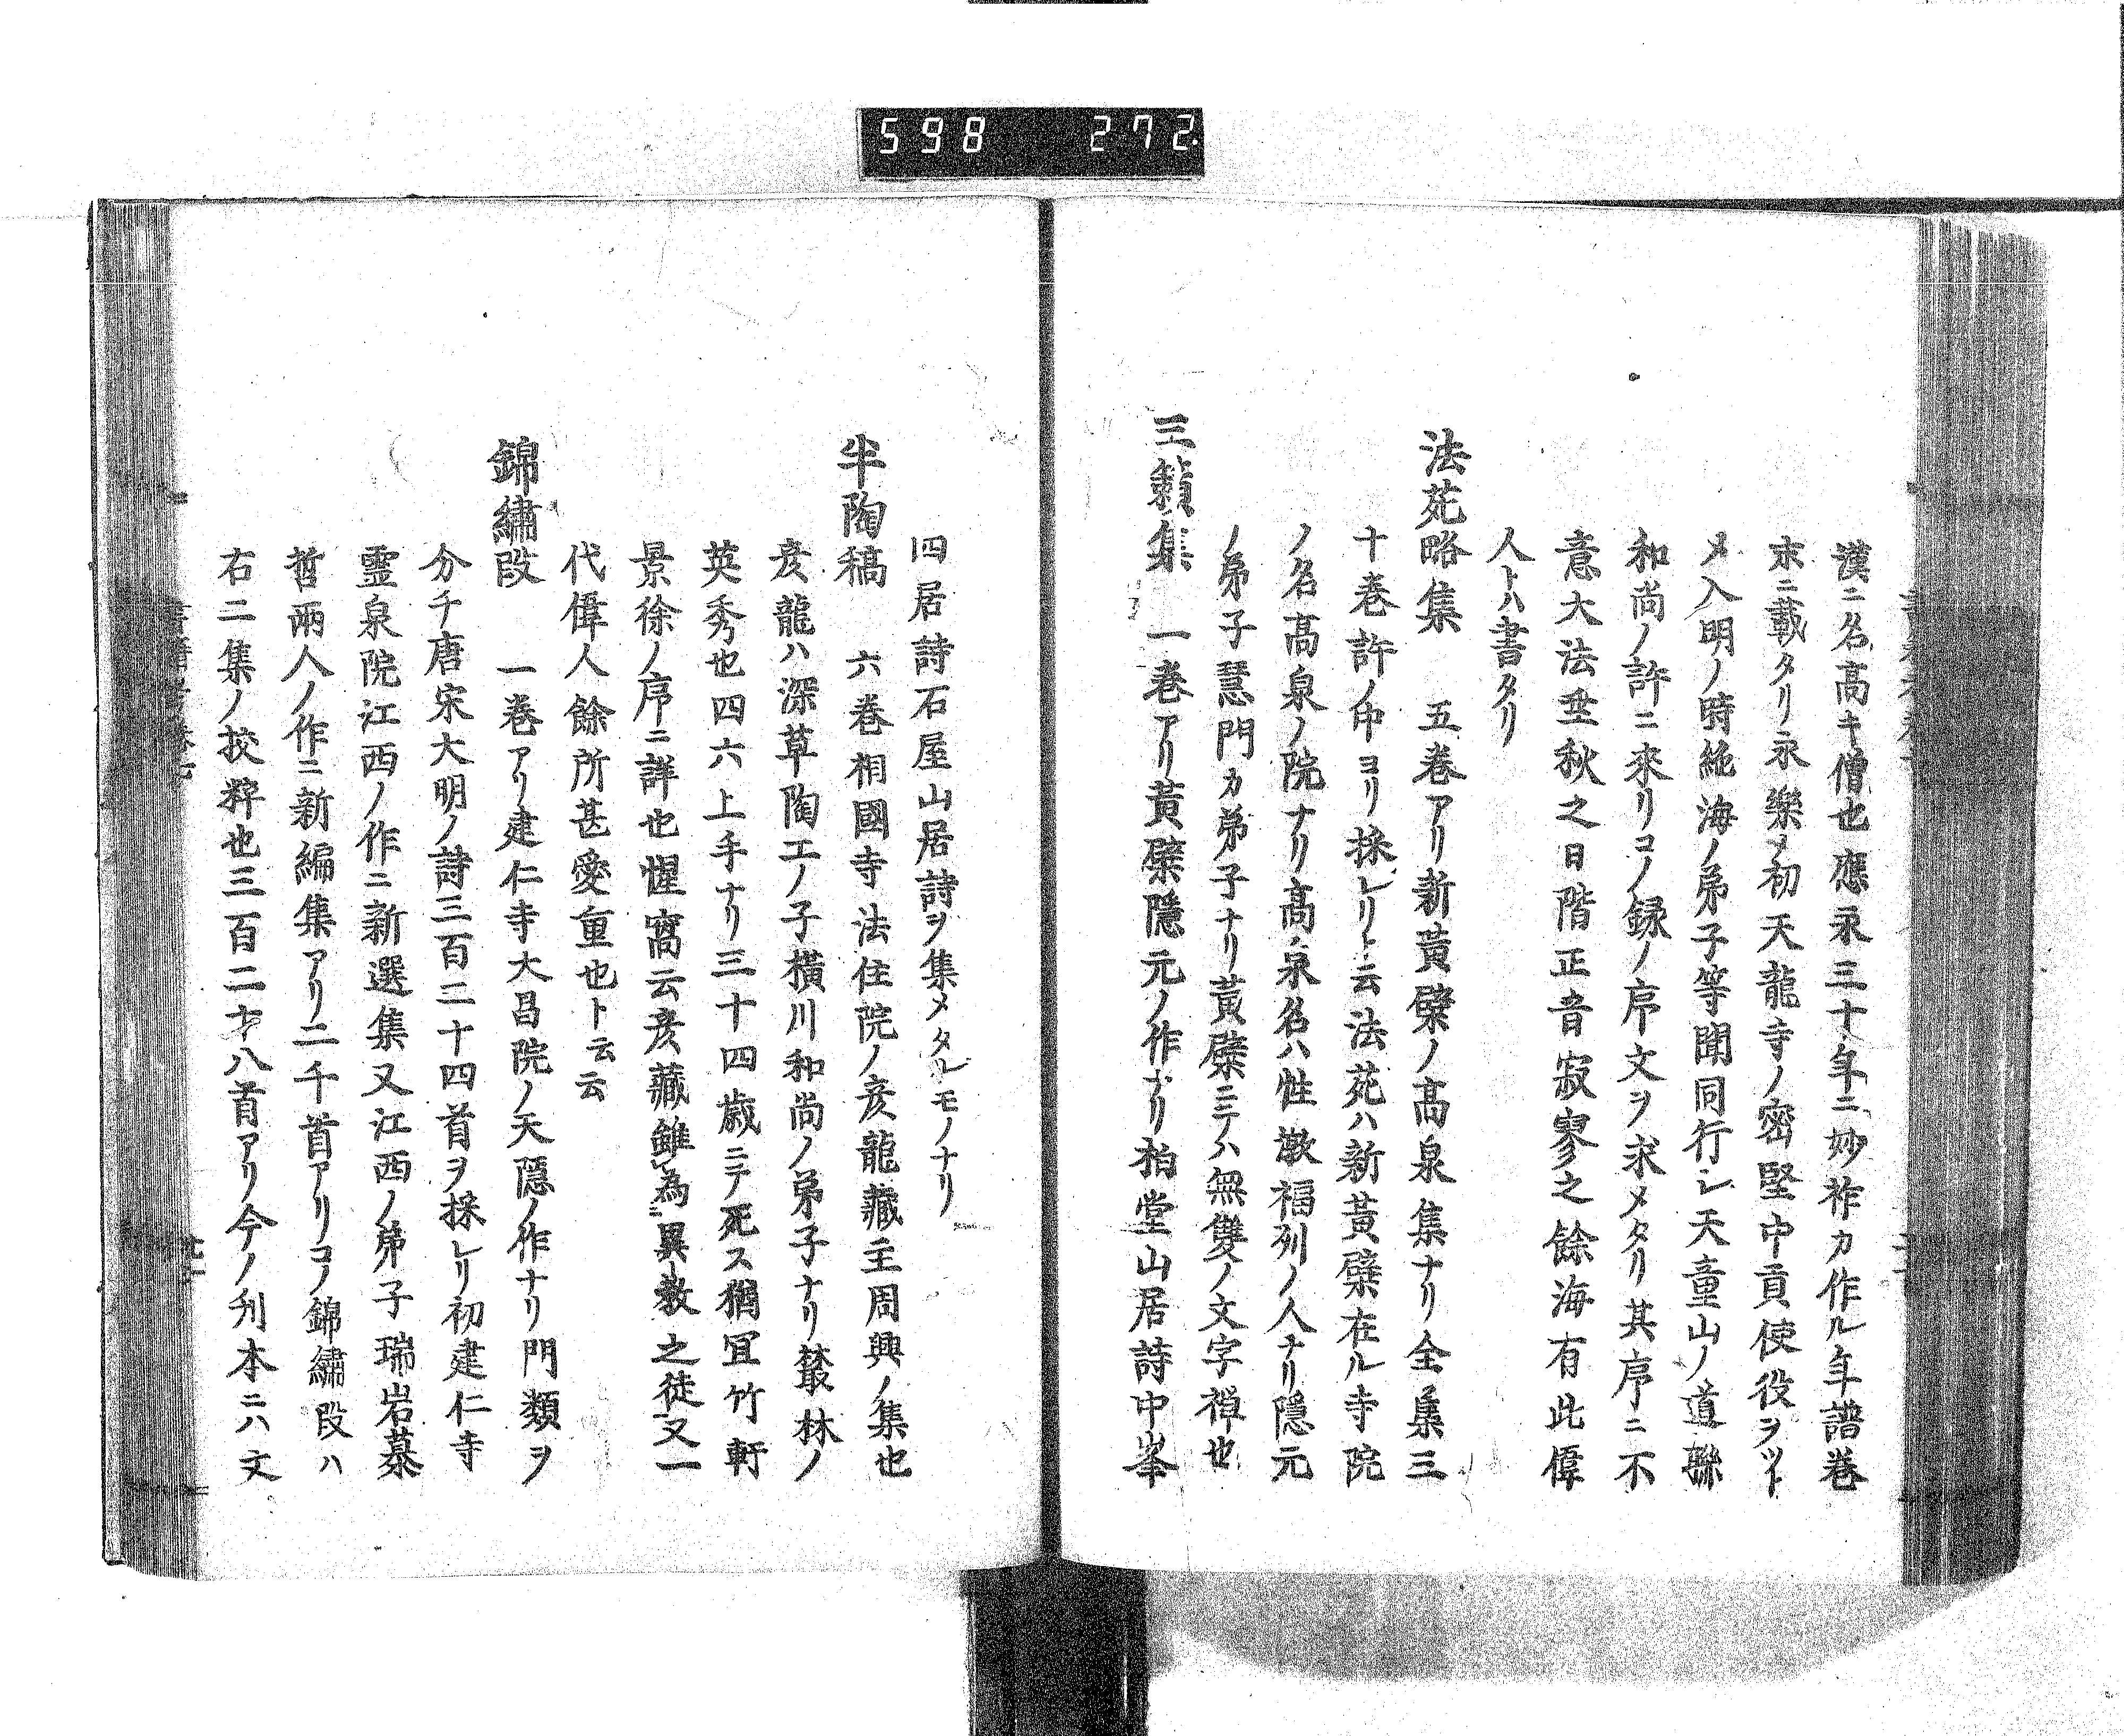 598 272
漢ニ名高キ僧也應永三十年ニ妙祚カ作ル年譜巻
末ニ載タリ永樂ノ初天龍寺ノ密堅中貢使役ヲツト
メ入明ノ時絶海ノ弟子等聞同行シ天童山ノ道聯
和尚ノ許ニ來リコノ録ノ序文ヲ求メタリ其序ニ不
意大法垂秋之日階正音寂寥之餘海有此偉
人トハ書タリ
法苑略集 五巻アリ新黄檗ノ髙泉集ナリ全集三
十巻許ノ中ヨリ採レリト云法苑ハ新黄檗在ル寺院
ノ名髙泉ノ院ナリ髙泉名ハ性激福列ノ人ナリ隱元
ノ弟子慧門カ弟子ナリ黄檗ニテハ無雙ノ文字禅也
三籟集 一巻アリ黄檗隱元ノ作ナリ栢堂山居詩中峯
四居詩石屋山居詩ヲ集メタルモノナリ
半陶稿 六巻相國寺法住院ノ彦龍藏主周興ノ集也
彦龍ハ深草陶工ノ子横川和尚ノ弟子ナリ叢林ノ
英秀也四六上手ナリ三十四歳ニテ死ス猶冝竹軒
景徐ノ序ニ詳也惺窩云彦藏雖為異教之徒又一
代偉人餘所甚愛重也ト云云
錦繡段 一巻アリ建仁寺大昌院ノ天隱ノ作ナリ門類ヲ
分千唐宋大明ノ詩三百二十四首ヲ採レリ初建仁寺
靈泉院江西ノ作ニ新選集又江西ノ弟子瑞岩慕
哲兩人ノ作ニ新編集アリ二千首アリコノ錦繡段ハ
右二集ノ挍粹也三百二十八首アリ今ノ刋本ニハ文